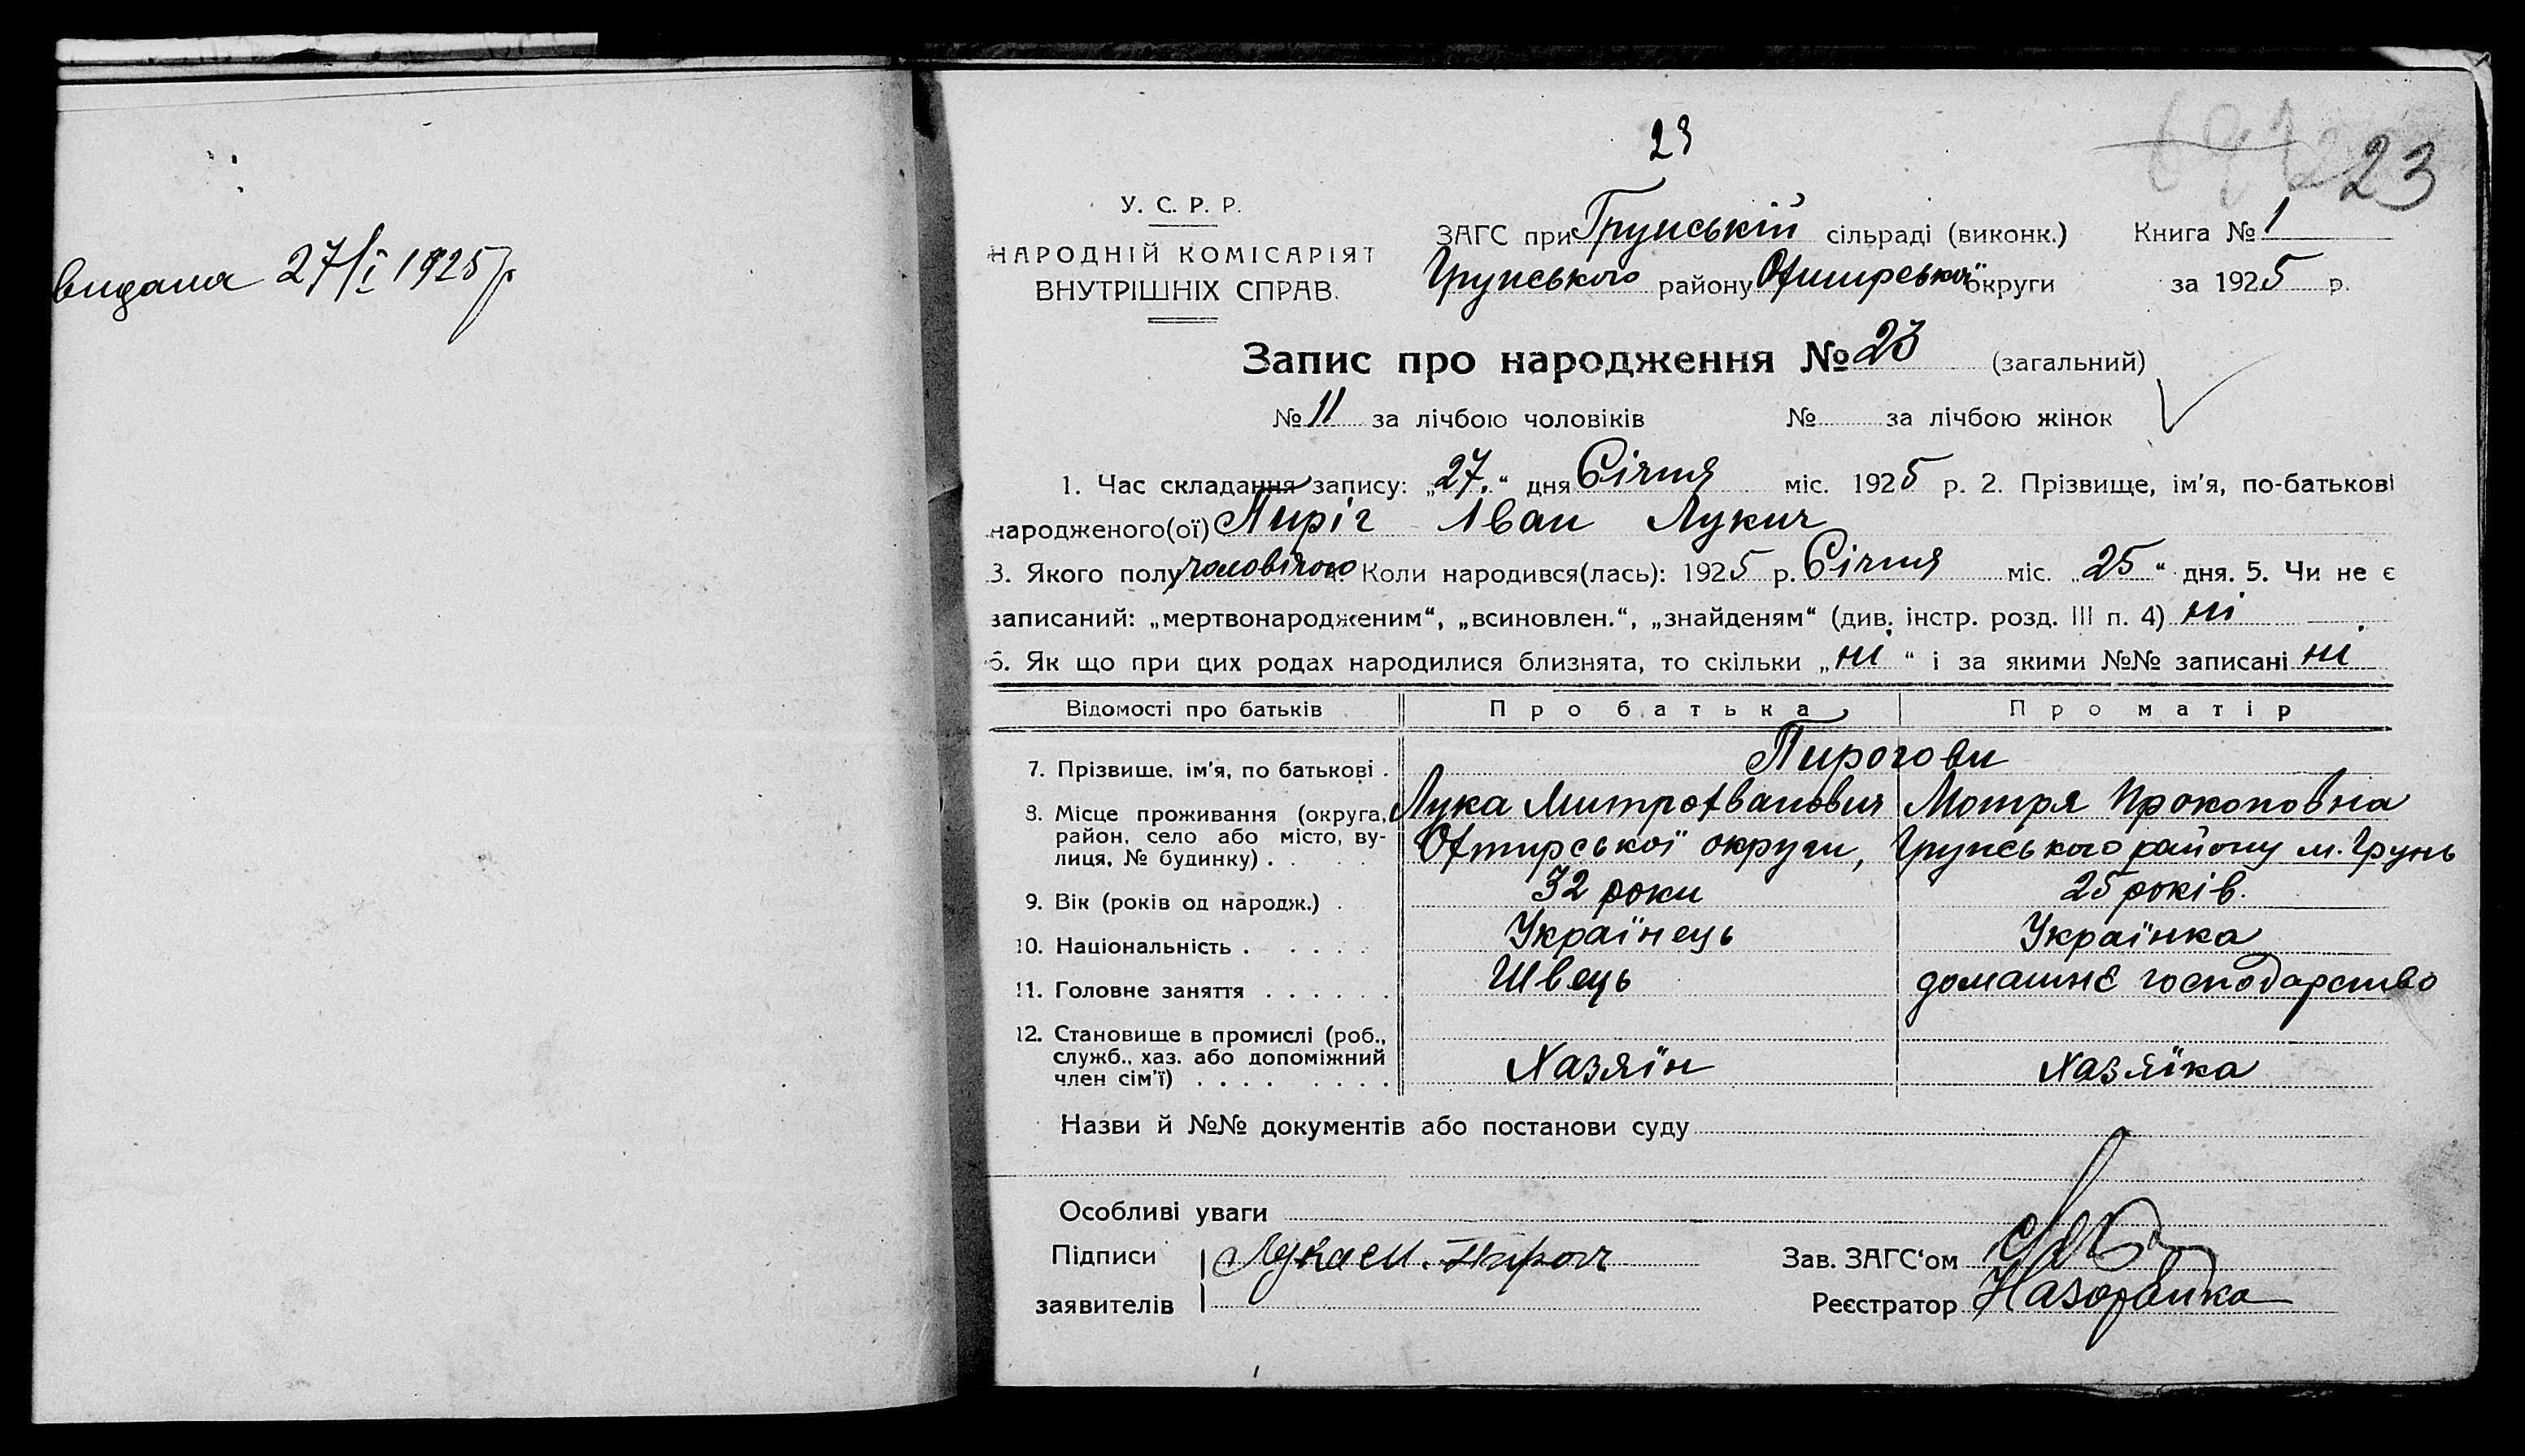 видана 27/I 1925 р
23
23
У. С. Р. Р.
НАРОДНІЙ КОМІСАРІЯТ
ВНУТРІШНІХ СПРАВ.
ЗАГС при Грунській сільраді (виконк.) Книга № 1
Грунського району Охтирської округи за 1925 р.
Запис про народження № 23 (загальний)
№ 11 за лічбою чоловіків № за лічбою жінок
1. Час складання запису: „27.“ дня Січня міс. 1925 р. 2. Прізвище, ім'я, по-батькові
народженого(ої) Пиріг Іван Лукич
3. Якого полу чоловічого Коли народився(лась): 1925 р. Січня міс. „25“ дня. 5. Чи не є
записаний: „мертвонародженим“, „всиновлен.“, „знайденям“ (див. інстр. розд. III п. 4) ні
6. Як що при цих родах народилися близнята, то скільки „ні“ і за якими №№ записані ні
Відомості про батьків Про батька Про матір
7. Прізвище, ім'я, по батькові . Пирогови
Лука Митрофанович Мотря Прокоповна
8. Місце проживання (округа, район, село або місто, ву-
лиця, № будинку) . . Охтирської округи, Грунського району м. Грунь
9. Вік (років од народж.) . 32 роки 25 років.
10. Національність . . . . . Українець Українка
11. Головне заняття . . . . . . Швець домашнє господарство
12. Становище в промислі (роб.,
служб., хаз. або допоміжний
член сім'ї) . . . . . . . . Хазяїн Хазяїка
Назви й №№ документів або постанови суду
Особливі уваги
Підписи Лука М. Пирог Зав. ЗАГС'ом
заявителів Реєстратор